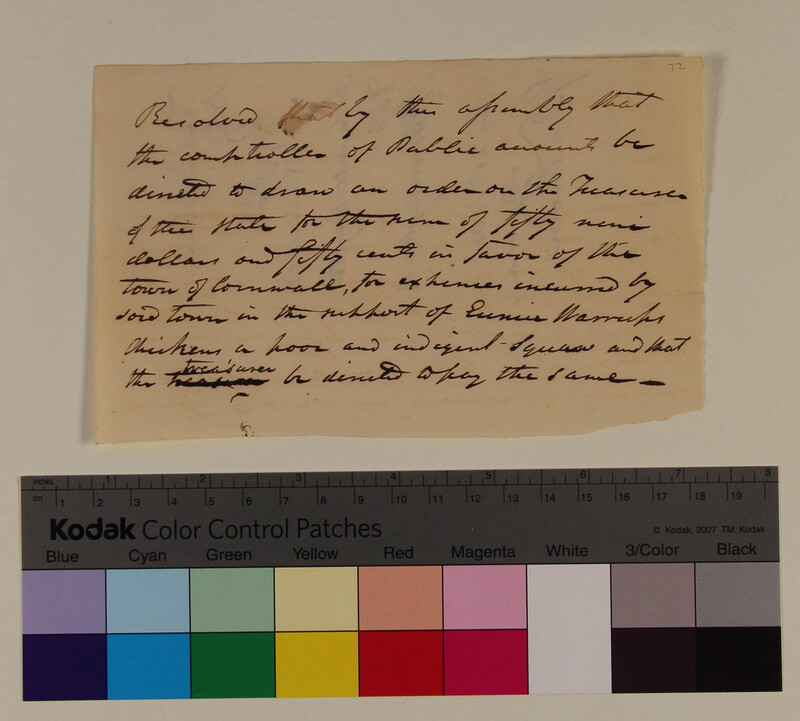 72
Resolved that by this assembly that
the comptroller of Public accounts be
directed to draw an order on the Treasurer
of this state for the sum of fifty nine
dollars and fifty cents in favor of the
town of Cornwall, for expenses incurred by
said town in the support of Eunice Warrups
chickens a poor and indigent Squaw and that
the treasurer be directed to pay the same —
inches 1 2 3 4 5 6 7 8
cm 1 2 3 4 5 6 7 8 9 10 11 12 13 14 15 16 17 18 19
Kodak Color Control Patches © Kodak, 2007 TM: Kodak
Blue Cyan Green Yellow Red Magenta White 3/Color Black